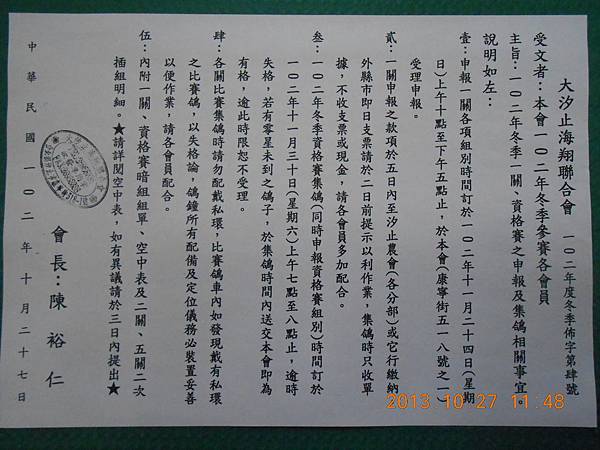 大汐止海翔聯合會 一○二年度冬季佈字第肆號
受文者：本會一○二年冬季參賽各會員
主旨：一○二年冬季一關、資格賽之申報及集鴿相關事宜。
說明如左：
壹：申報一關各項組別時間訂於一○二年十一月二十四日(星期
日)上午十點至下午五點止，於本會(康寧街五一八號之一)
受理申報。
貳：一關申報之款項於五日內至汐止農會(各分部)或它行繳納
外縣市即日支票請於二日前提示以利作業，集鴿時只收單
據，不收支票或現金，請各會員多加配合。
叁：一○二年冬季資格賽集鴿(同時申報資格賽組別)時間訂於
一○二年十一月三十日(星期六)上午七點至八點止，逾時
失格，若有零星未到之鴿子，於集鴿時間內送交本會即為
有格，逾此時限恕不受理。
肆：各關比賽集鴿時請勿配戴私環，比賽鴿車內如發現戴有私環
之比賽鴿，以失格論，鴿鐘所有配備及定位儀務必裝置妥善
以便作業，請各會員配合。
伍：內附一關、資格賽暗組組單、空中表及二關、五關二次
插組明細。★請詳閱空中表，如有異議請於三日內提出★
會長：陳裕仁
中華民國一○二年十月二十七日
2013.10.27 11:48